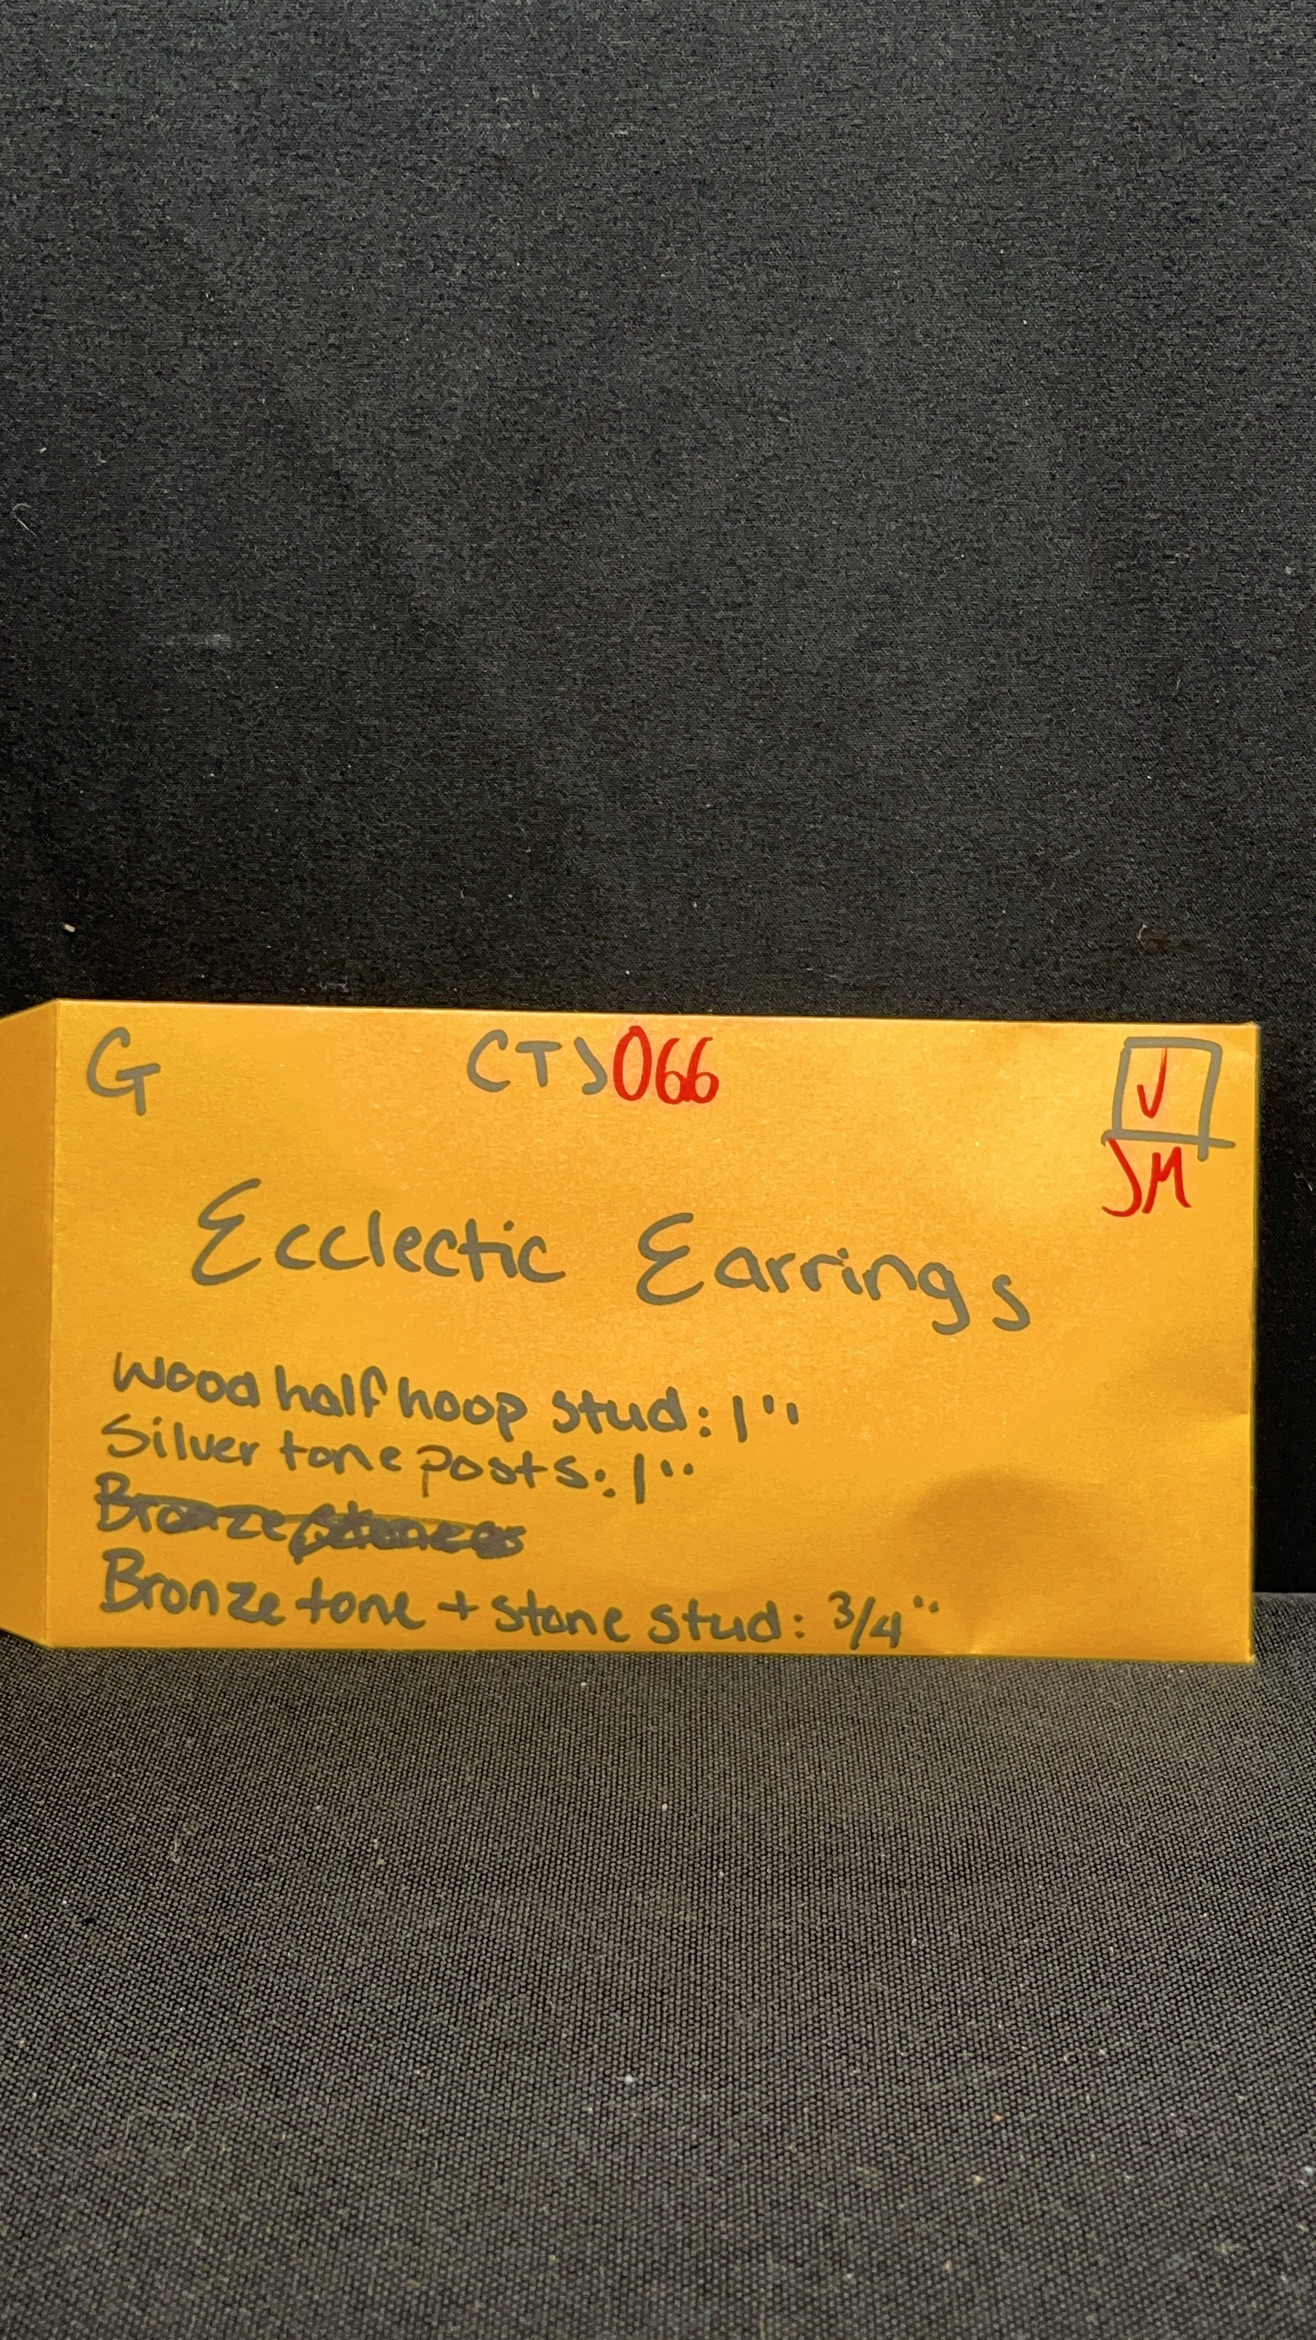 G CTJ066 ✓
JM
Ecclectic Earrings
Wood half hoop stud: 1"
Silver tone posts: 1"
Bronze stone
Bronze tone + stone stud: 3/4"